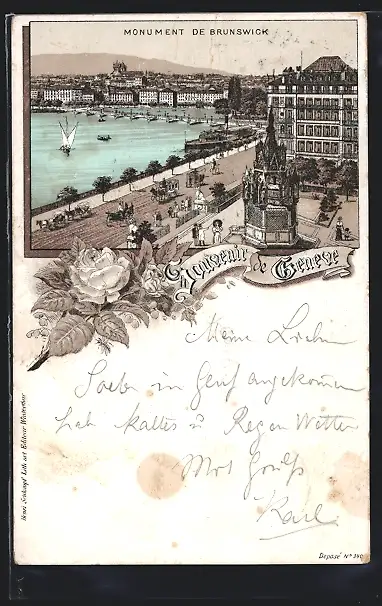 MONUMENT DE BRUNSWICK
Souvenir de Genève
Meine Lieben
Soeben in Genf angekommen
hab kaltes u Regen Wetter
Mit Gruss
Karl
Depose Nº 390
Henri Schlumpf Lith. art. Editeur Winterthur